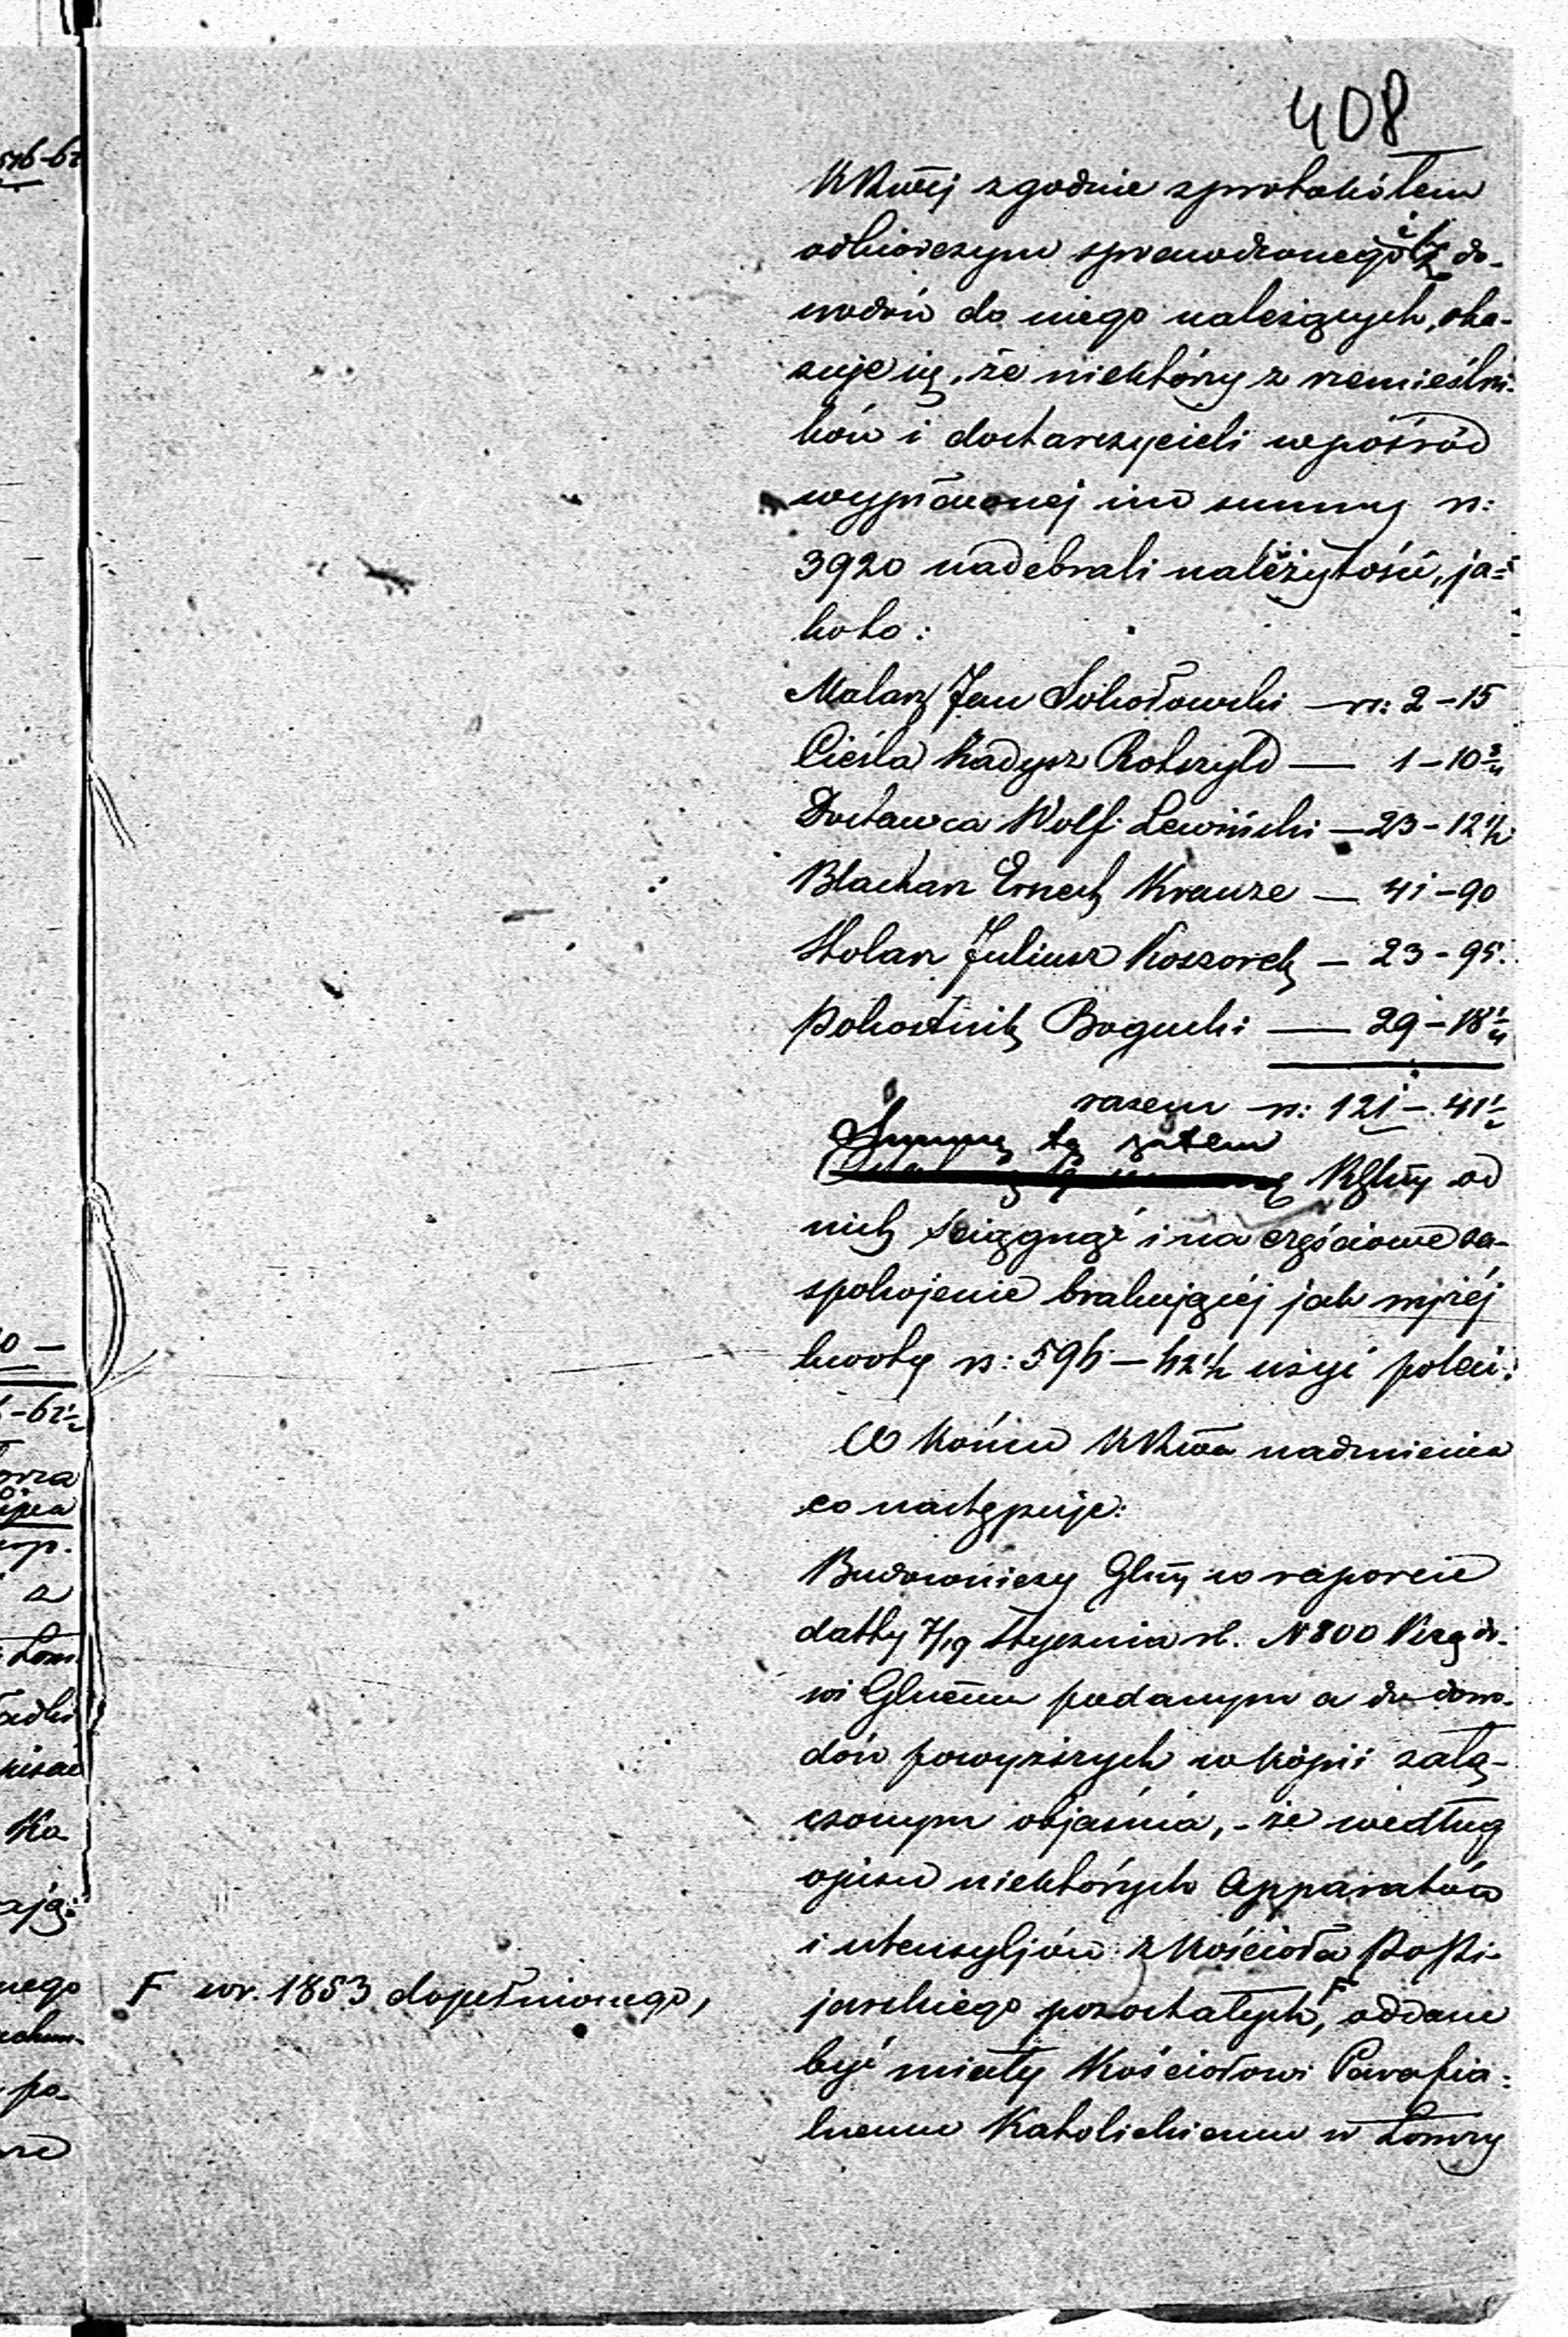 408
KRzwej zgodnie z protokółem
odbiorczym sprawdzonego i z do-
wodów do niego należących, oka-
zuje się, że niektórzy z rzemieślni-
ków i dostarczycieli wpośród
wypłaconej im summy rs:
3920 nadebrali należytość, ja-
koto:
Malarz Jan Sokołowski — rs: 2 – 15
Cieśla Kadysz Rotszyld — 1 – 10 3/4
Dostawca Wolf Lewiński — 23 – 12 1/2
Blacharz Ernest Krauze — 41 – 90
Stolarz Juliusz Koszorek — 23 – 95.
Pokostnik Bogucki — 29 – 18 1/4
razem rs: 121 – 41 1/2
Summę tę zatem
RGlny od
nich ściągnąć i na częściowe za-
spokojenie brakującéj jak wyżéj
kwoty rs: 596 – 62 1/2 użyć poleci.
W końcu KRzwa nadmienia
co następuje:
Budowniczy Glny w raporcie
datty 7/19 Stycznia rb. N 800 Rząd-
wi Glnemu podanym a do dowo-
dów powyższych w kopii załą-
czonym objaśnia, – że według
opisu niektórych Apparatów
i utensyljów z Kościoła Po Pi-
jarskiego pozostałych, F oddane
być miały Kościołowi Parafia-
lnemu Katolickiemu w Łomży
F w r. 1853 dopełnionego,